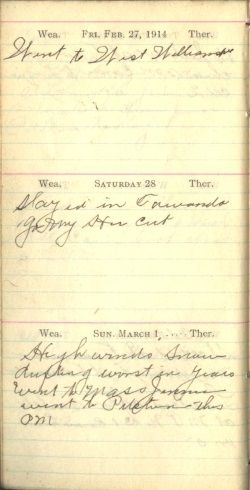 Wea. FRI. FEB. 27, 1914 Ther.
Went to West
Wea. SATURDAY 28 Ther.
Stayed in Towanda
Got my Cut
Wea. SUN. MARCH 1, .... Ther.
High winds Snow
drifting worst in Years
went to Mass Jennie
went to this
PM